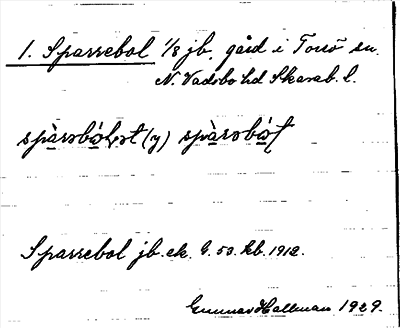 1. Sparrebol 1/8 jb. gård i Torsö sn.
N. Vadsbo hd Skarab. l.
spàrəbo̤lət (y) spàrəbo̤t
Sparrebol jb. ek. G. 53. kb. 1912.
Gunnar Hallman 1929.